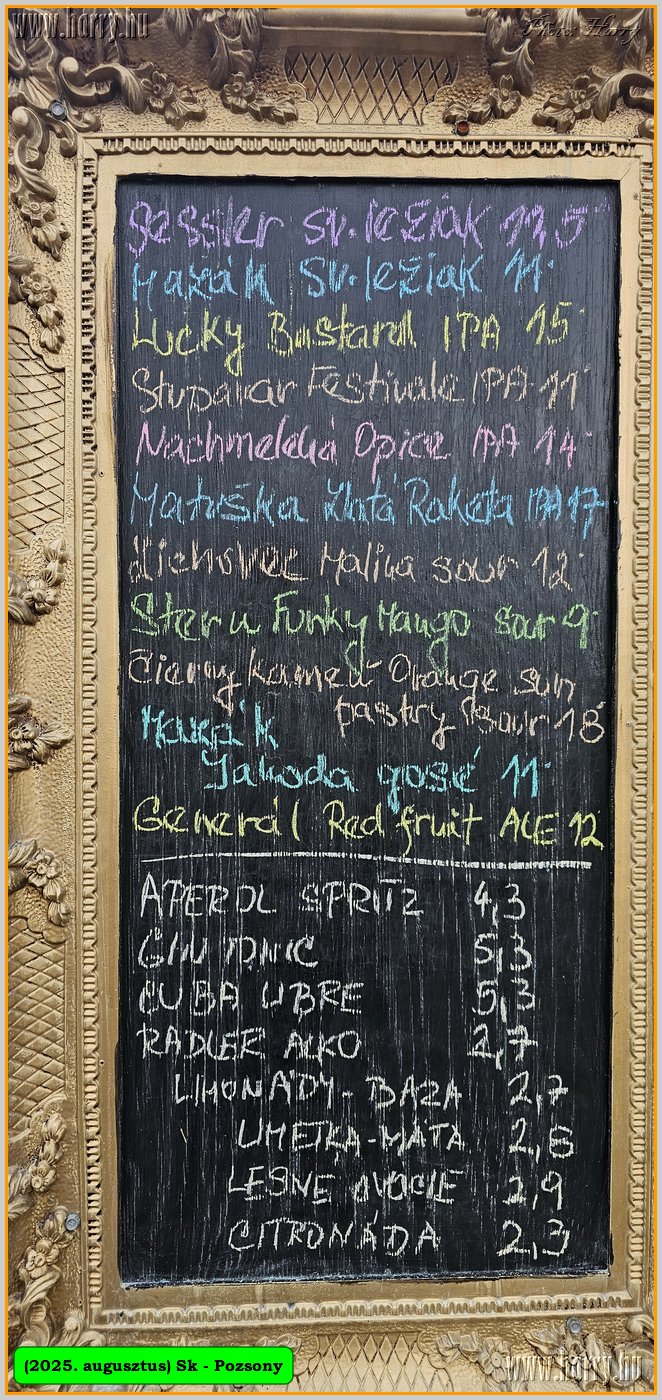 www.harry.hu
Photo: Harry
Gessler sv. ležiak 11,5°
Hazák Sv. ležiak 11°
Lucky Bastard IPA 15°
Stupavar Festivale IPA 11°
Nachmelená Opice IPA 14°
Matuška Zlatá Raketa IPA 17°
Zichovec Malina sour 12°
Steru Funky Mango sour 9°
Čierny kameň Orange sun
pastry sour 18°
Mazák
Jahoda gosé 11°
Generál Red fruit ALE 12
APEROL SPRITZ 4,3
GIN TONIC 5,3
CUBA LIBRE 5,3
RADLER ALKO 2,7
LIMONÁDY - BAZA 2,7
LIMETKA - MÄTA 2,8
LESNE OVOCIE 2,9
CITRONÁDA 2,3
(2025. augusztus) Sk - Pozsony
www.harry.hu